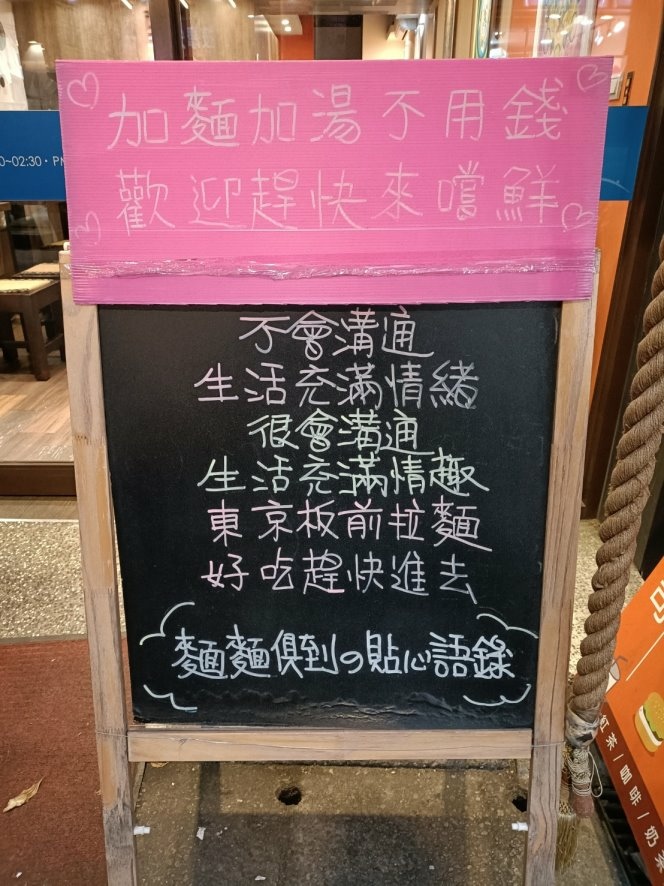 加麵加湯不用錢
歡迎趕快來嚐鮮
0~02:30・PM
不會溝通
生活充滿情緒
很會溝通
生活充滿情趣
東京板前拉麵
好吃趕快進去
麵麵俱到の貼心語錄
紅茶/咖啡/奶茶